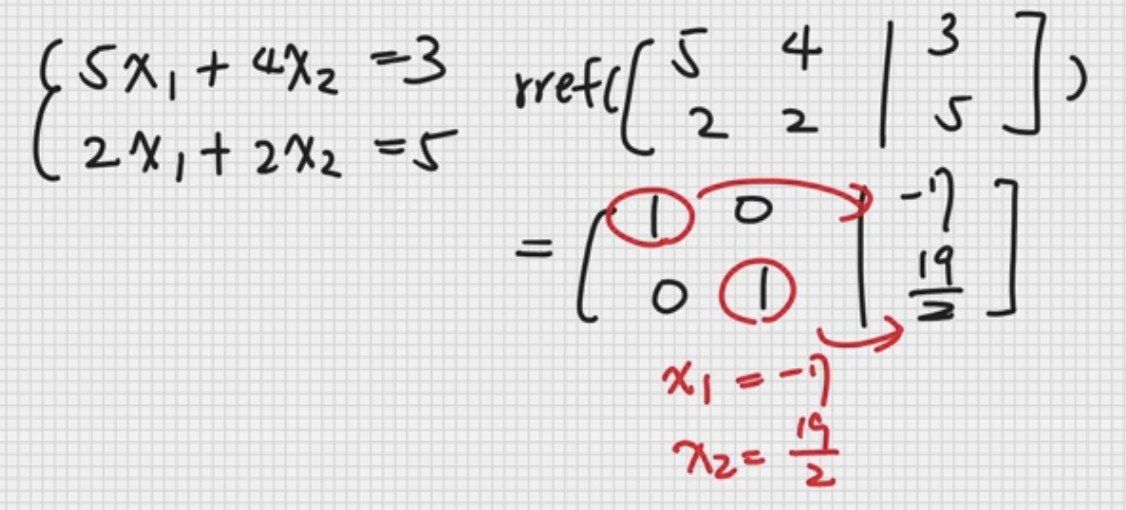 5x₁ + 4x₂ = 3
2x₁ + 2x₂ = 5
rref([5 4 | 3
2 2 | 5])
= [1 0 | -7
0 1 | 19/2]
x₁ = -7
x₂ = 19/2